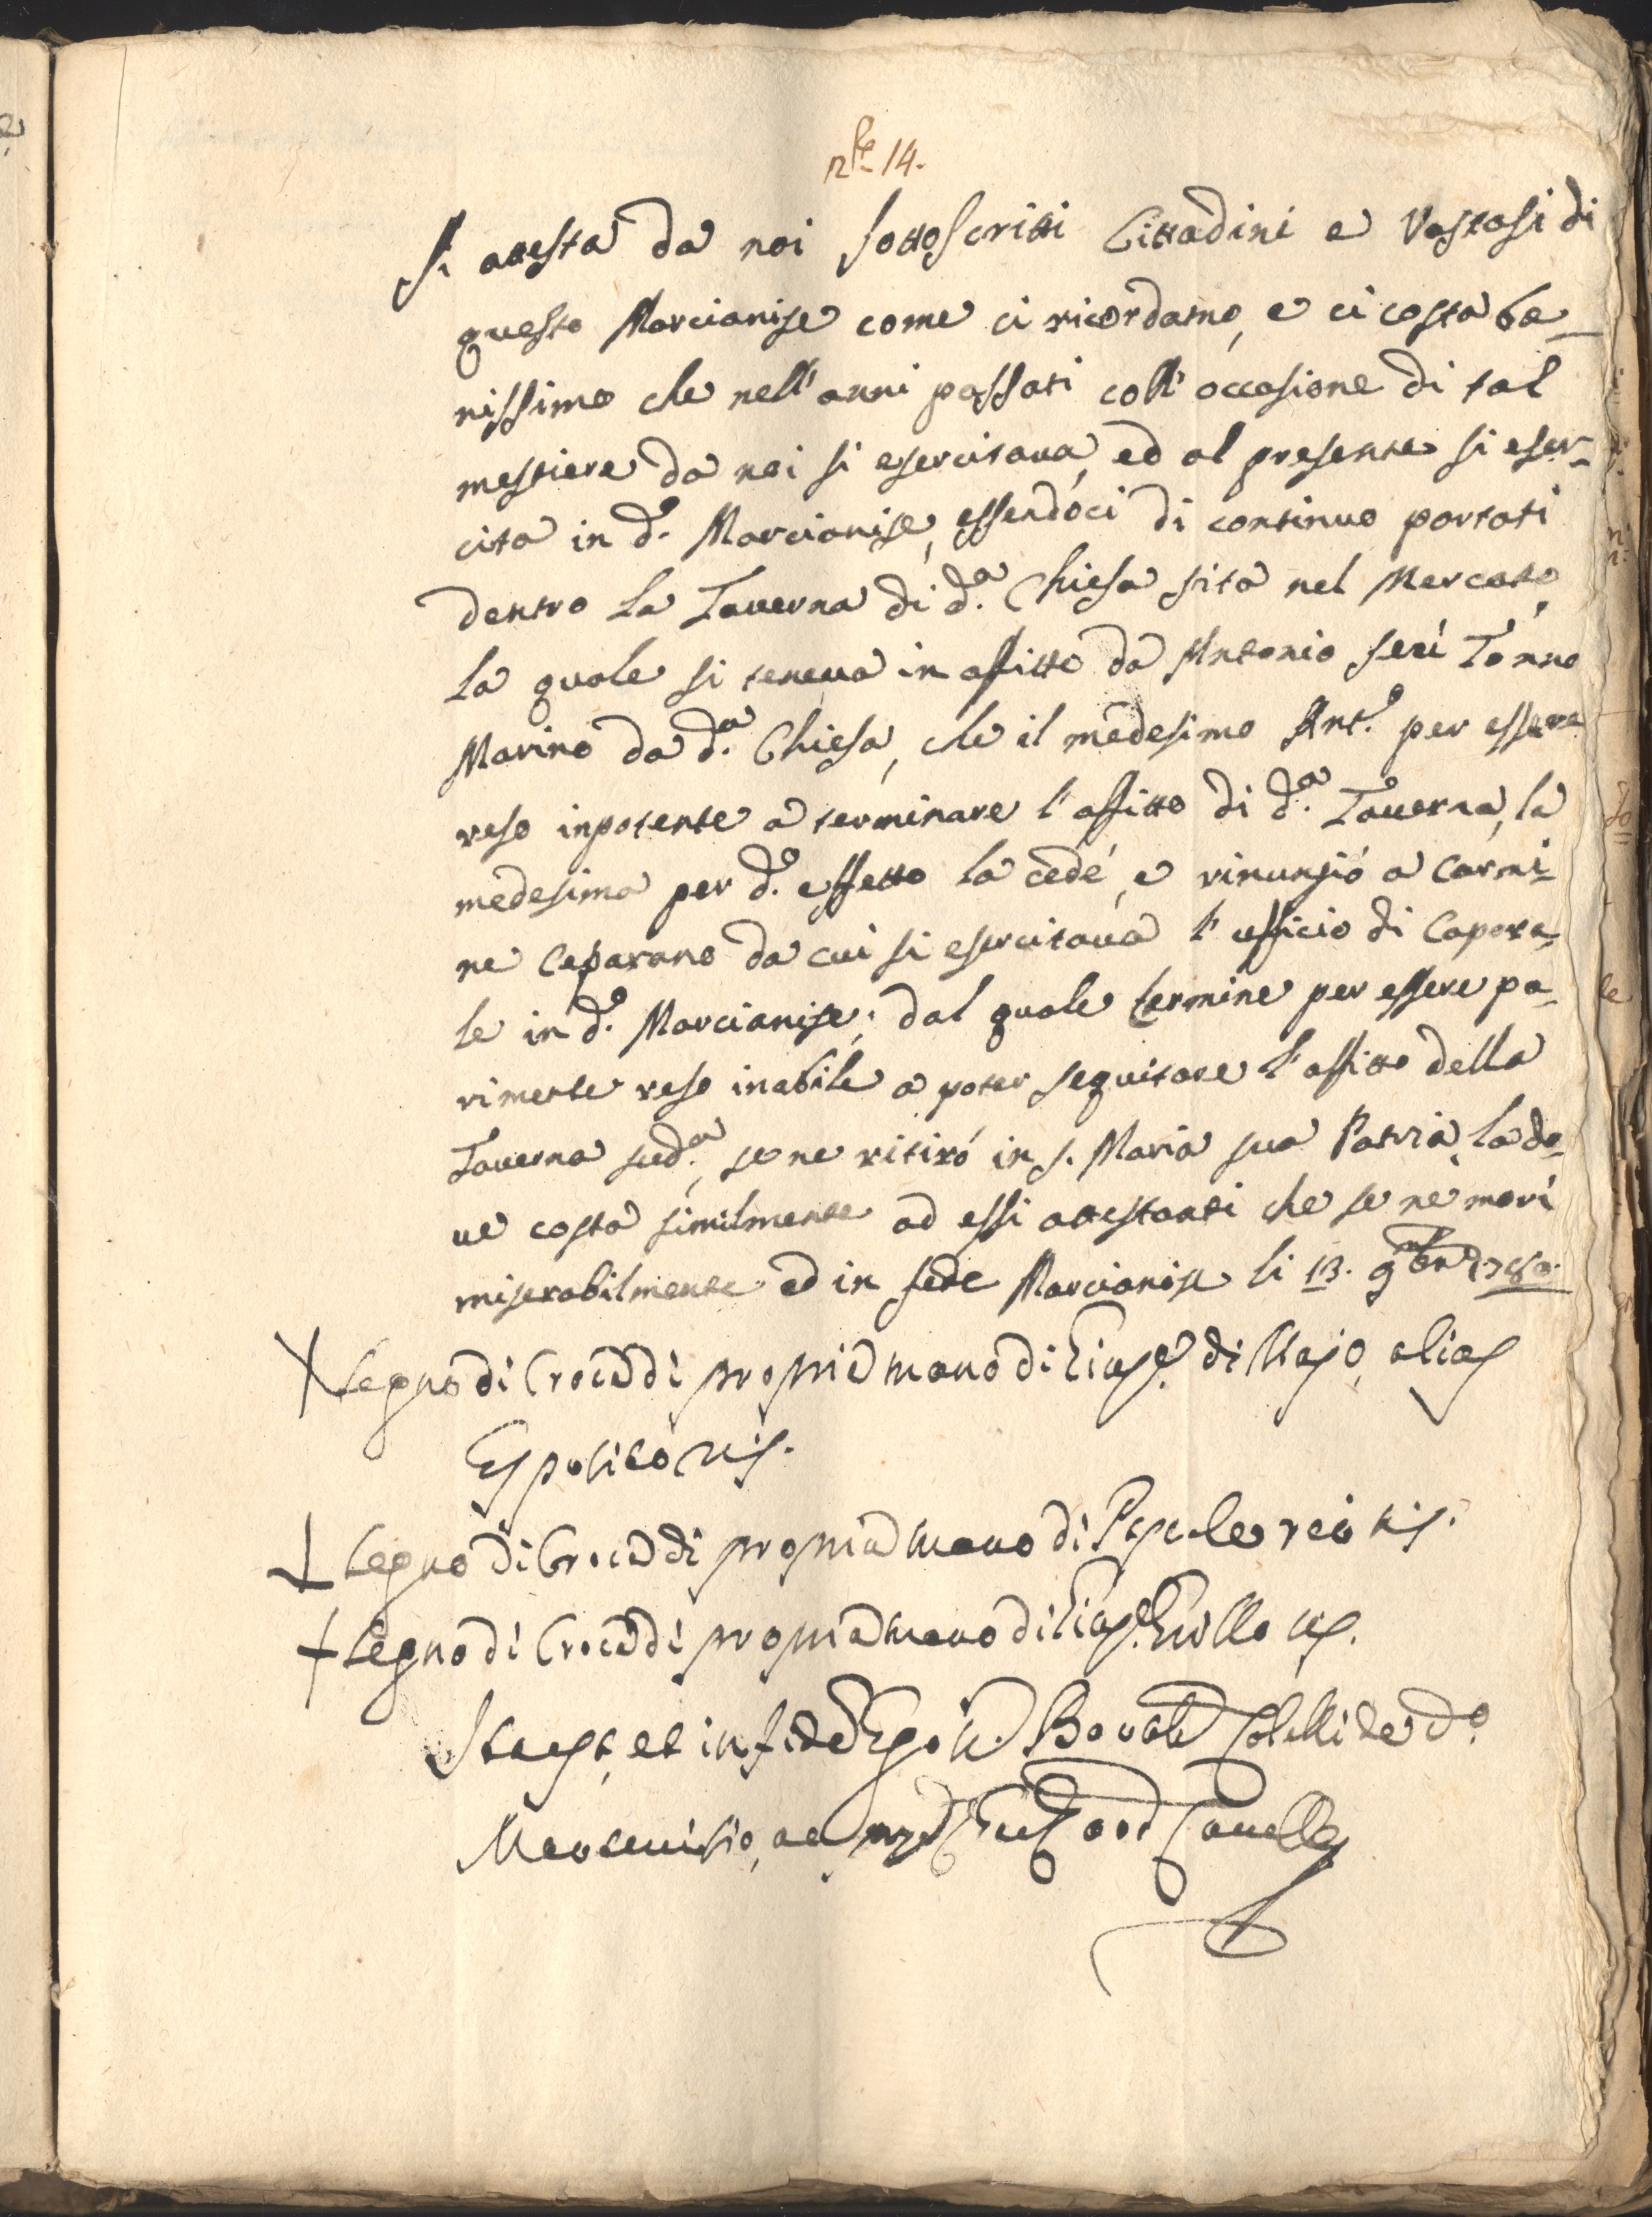 14.
Si attesta da noi sottoscritti Cittadini e Vastasi di
questo Marcianise come ci ricordamo, e ci costa be-
nissimo che nell'anni passati coll'occasione di tal
mestiere da noi si esercitava, ed al presente si eser-
cita in d.º Marcianise, essendoci di continuo portati
dentro la Taverna di d.ª Chiesa sita nel Mercato,
la quale si teneva in affitto da Antonio seu Tonno
Marino da d.ª Chiesa, che il medesimo Ant.º per essere
reso inpotente a terminare l'affitto di d.ª Taverna, la
medesima per d.º effetto la cedé, e rinunziò a Carmi-
ne Caparano da cui si esercitava l'ufficio di Capora-
le in d.º Marcianise; dal quale termine per essere pa-
rimente reso inabile a poter seguitare l'affitto della
Taverna sud.ª, se ne ritirò in S. Maria sua Patria, lado-
ve costa similmente ad essi attestanti che se ne morì
miserabilmente ed in fede Marcianise li 13. 9bre 1780.
Segno di Croce di propria mano di Gius.e di Majo, alias
Esposito
Segno di Croce di propria mano di
Segno di Croce di propria mano di Gius.e
et in fide Ego